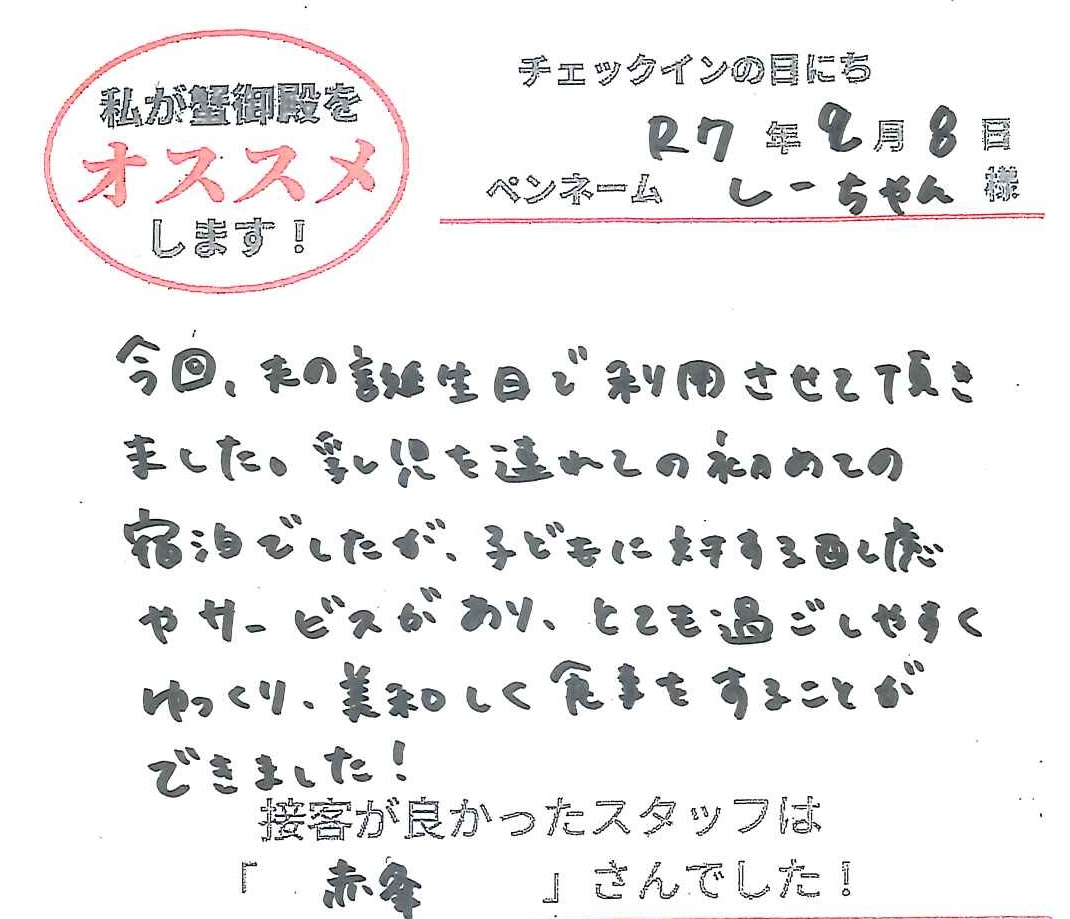 私が蟹御殿を
オススメ
します！
チェックインの日にち
R7年9月8日
ペンネーム しーちゃん 様
今回、夫の誕生日で利用させて頂き
ました。乳児を連れての初めての
宿泊でしたが、子どもに対する配慮
やサービスがあり、とても過ごしやすく
ゆっくり、美味しく食事をすることが
できました！
接客が良かったスタッフは
「 赤峯 」さんでした！